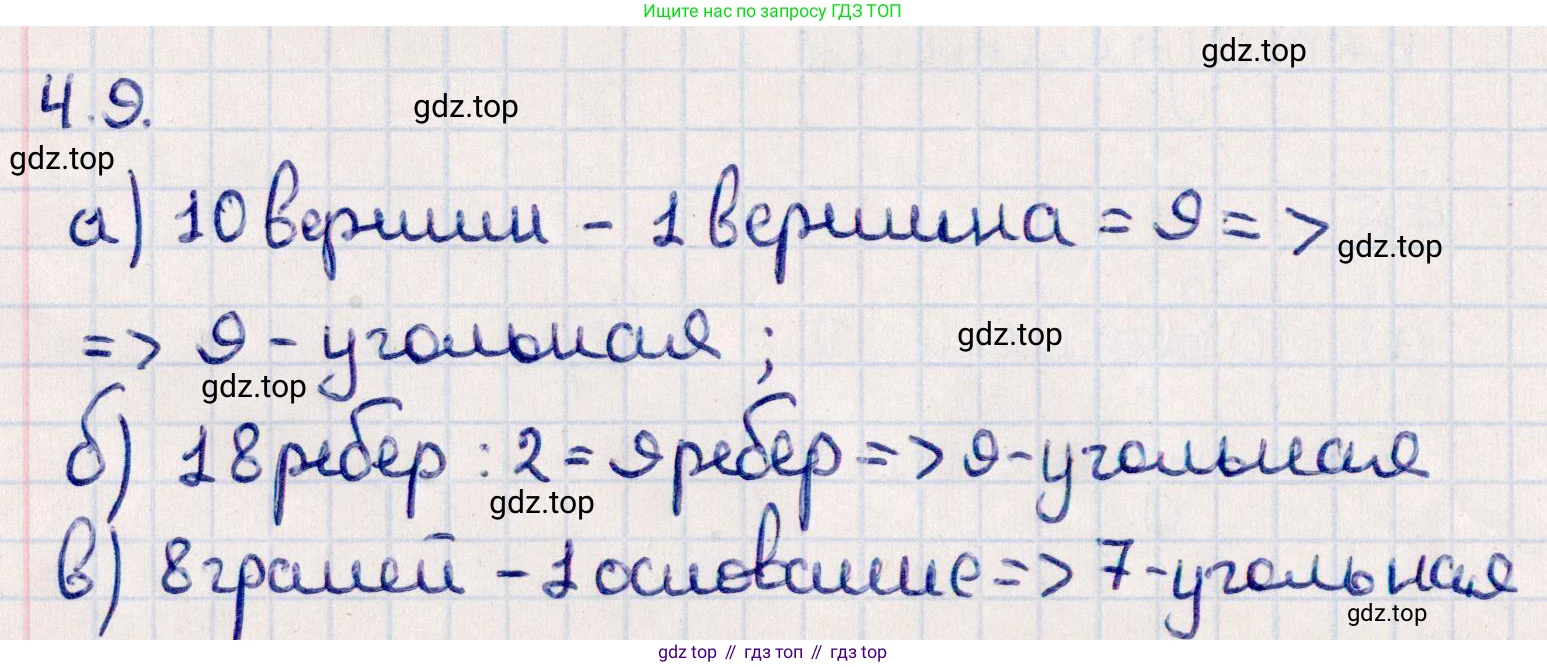 Ищите нас по запросу ГДЗ ТОП
gdz.top
4.9.
gdz.top
gdz.top
а) 10 вершин - 1 вершина = 9 = >
gdz.top
= > 9 - угольная ;
gdz.top
gdz.top
б) 18 ребер : 2 = 9 ребер = > 9-угольная
gdz.top
в) 8 граней - 1 основание = > 7-угольная
gdz.top
gdz top // гдз топ // гдз top